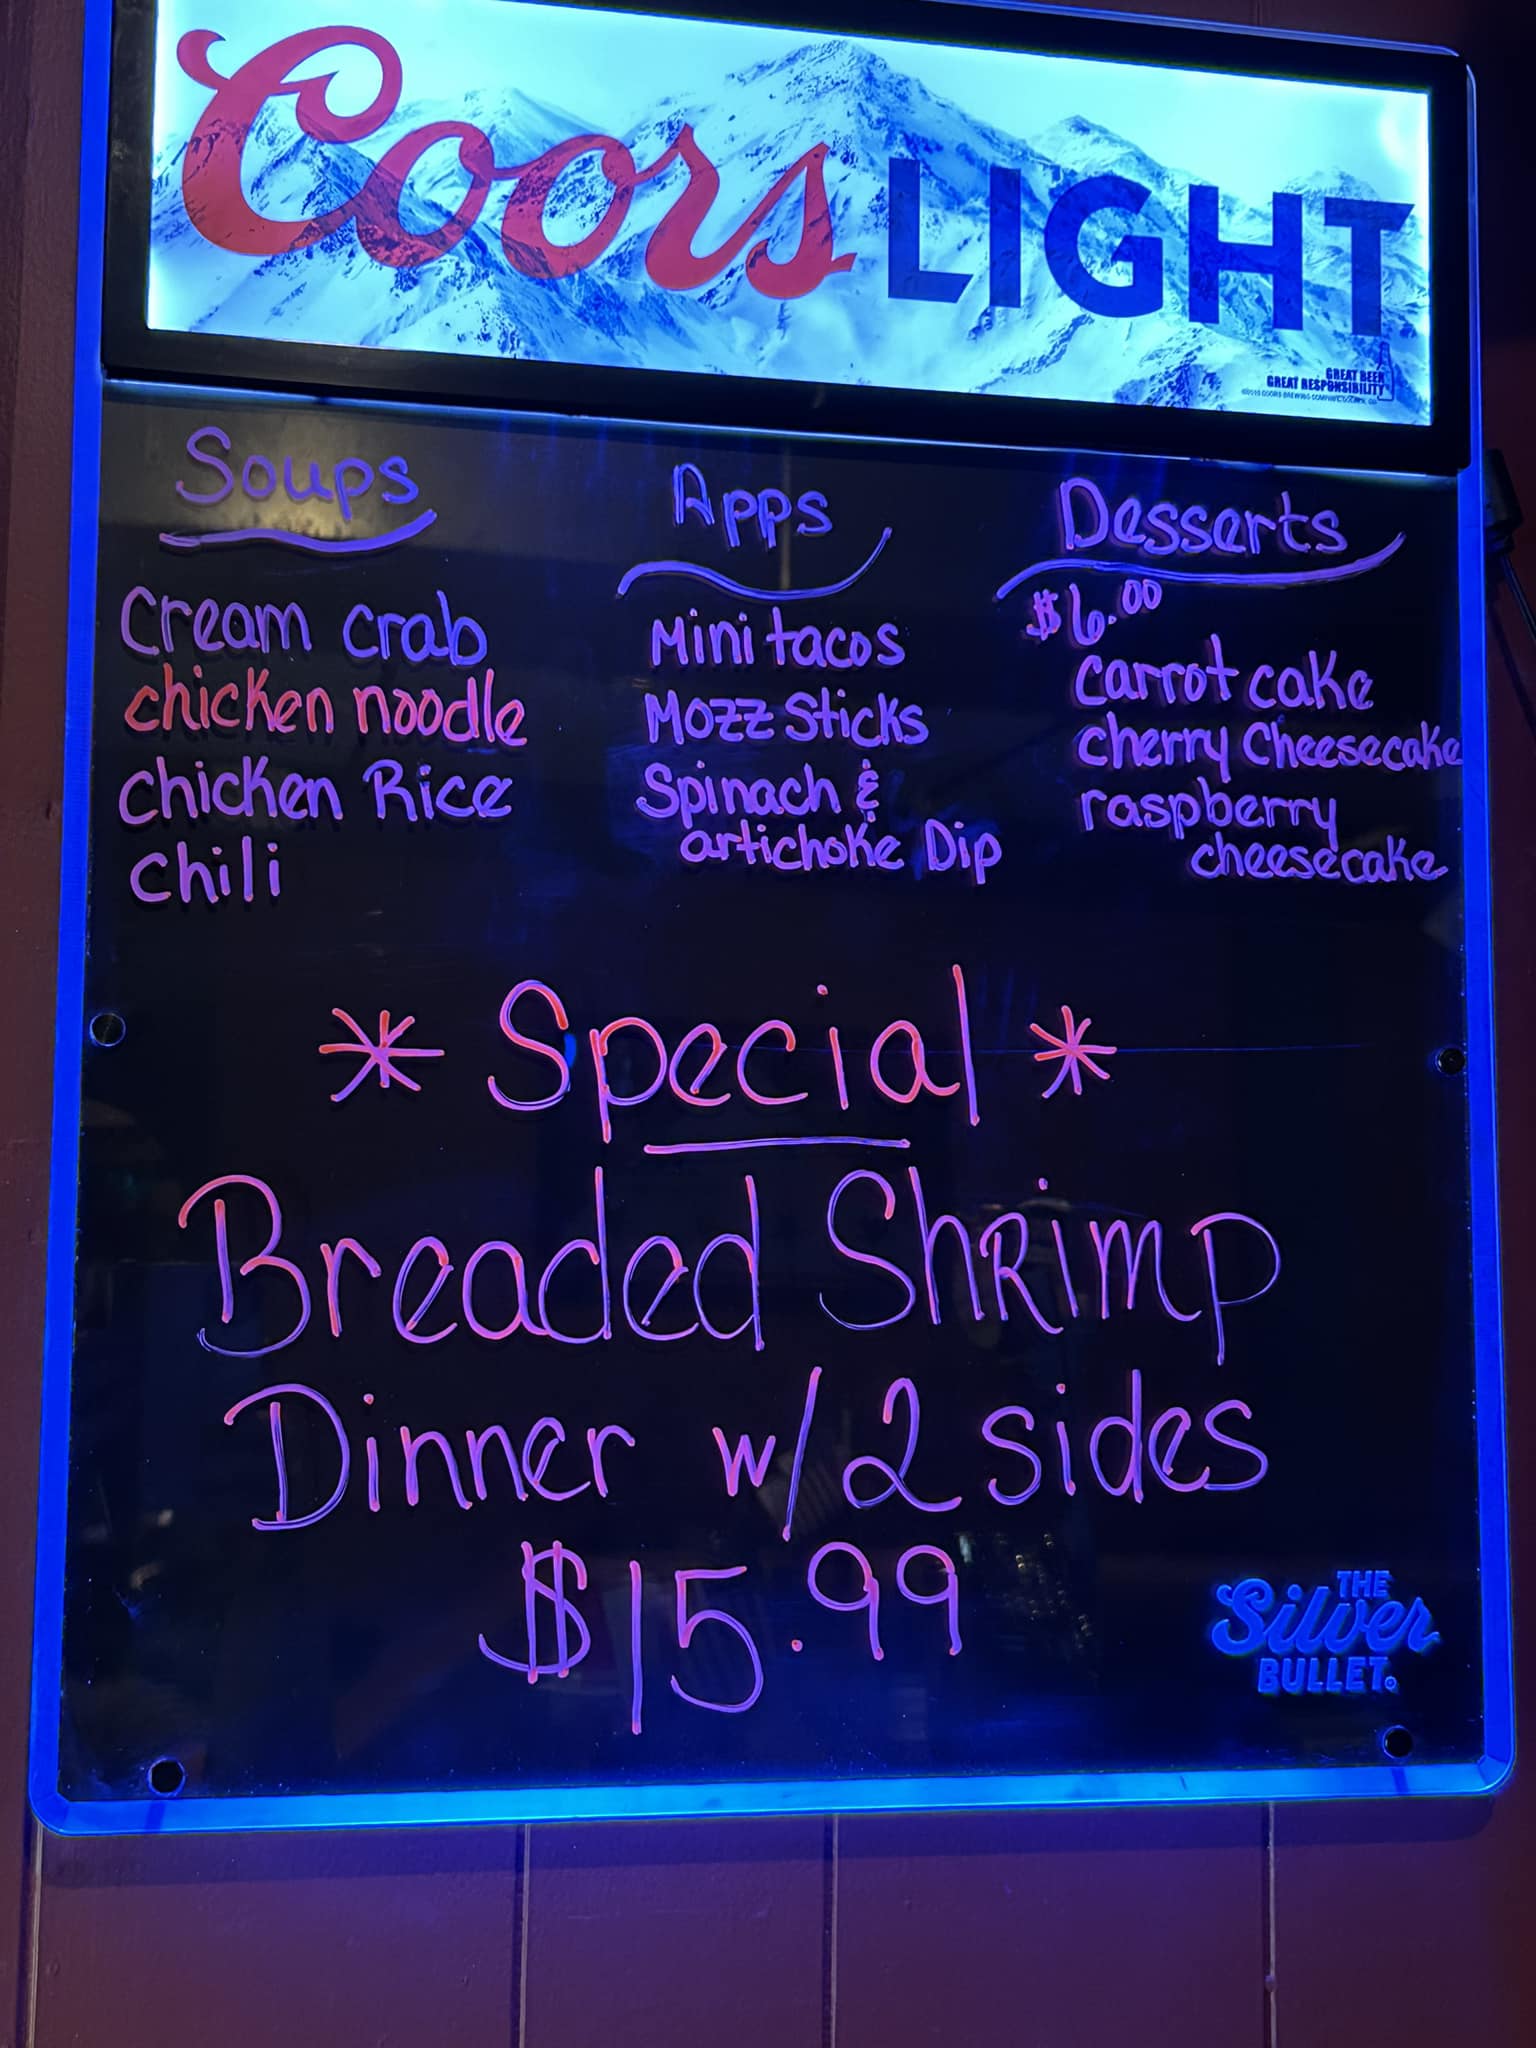 Coors LIGHT
GREAT BEER
GREAT RESPONSIBILITY
Soups
Cream crab
chicken noodle
chicken Rice
chili
Apps
Mini tacos
Mozz Sticks
Spinach &
artichoke Dip
Desserts
$6.00
carrot cake
cherry cheesecake
raspberry
cheesecake
* Special *
Breaded Shrimp
Dinner w/ 2 sides
$15.99
THE
Silver
BULLET.